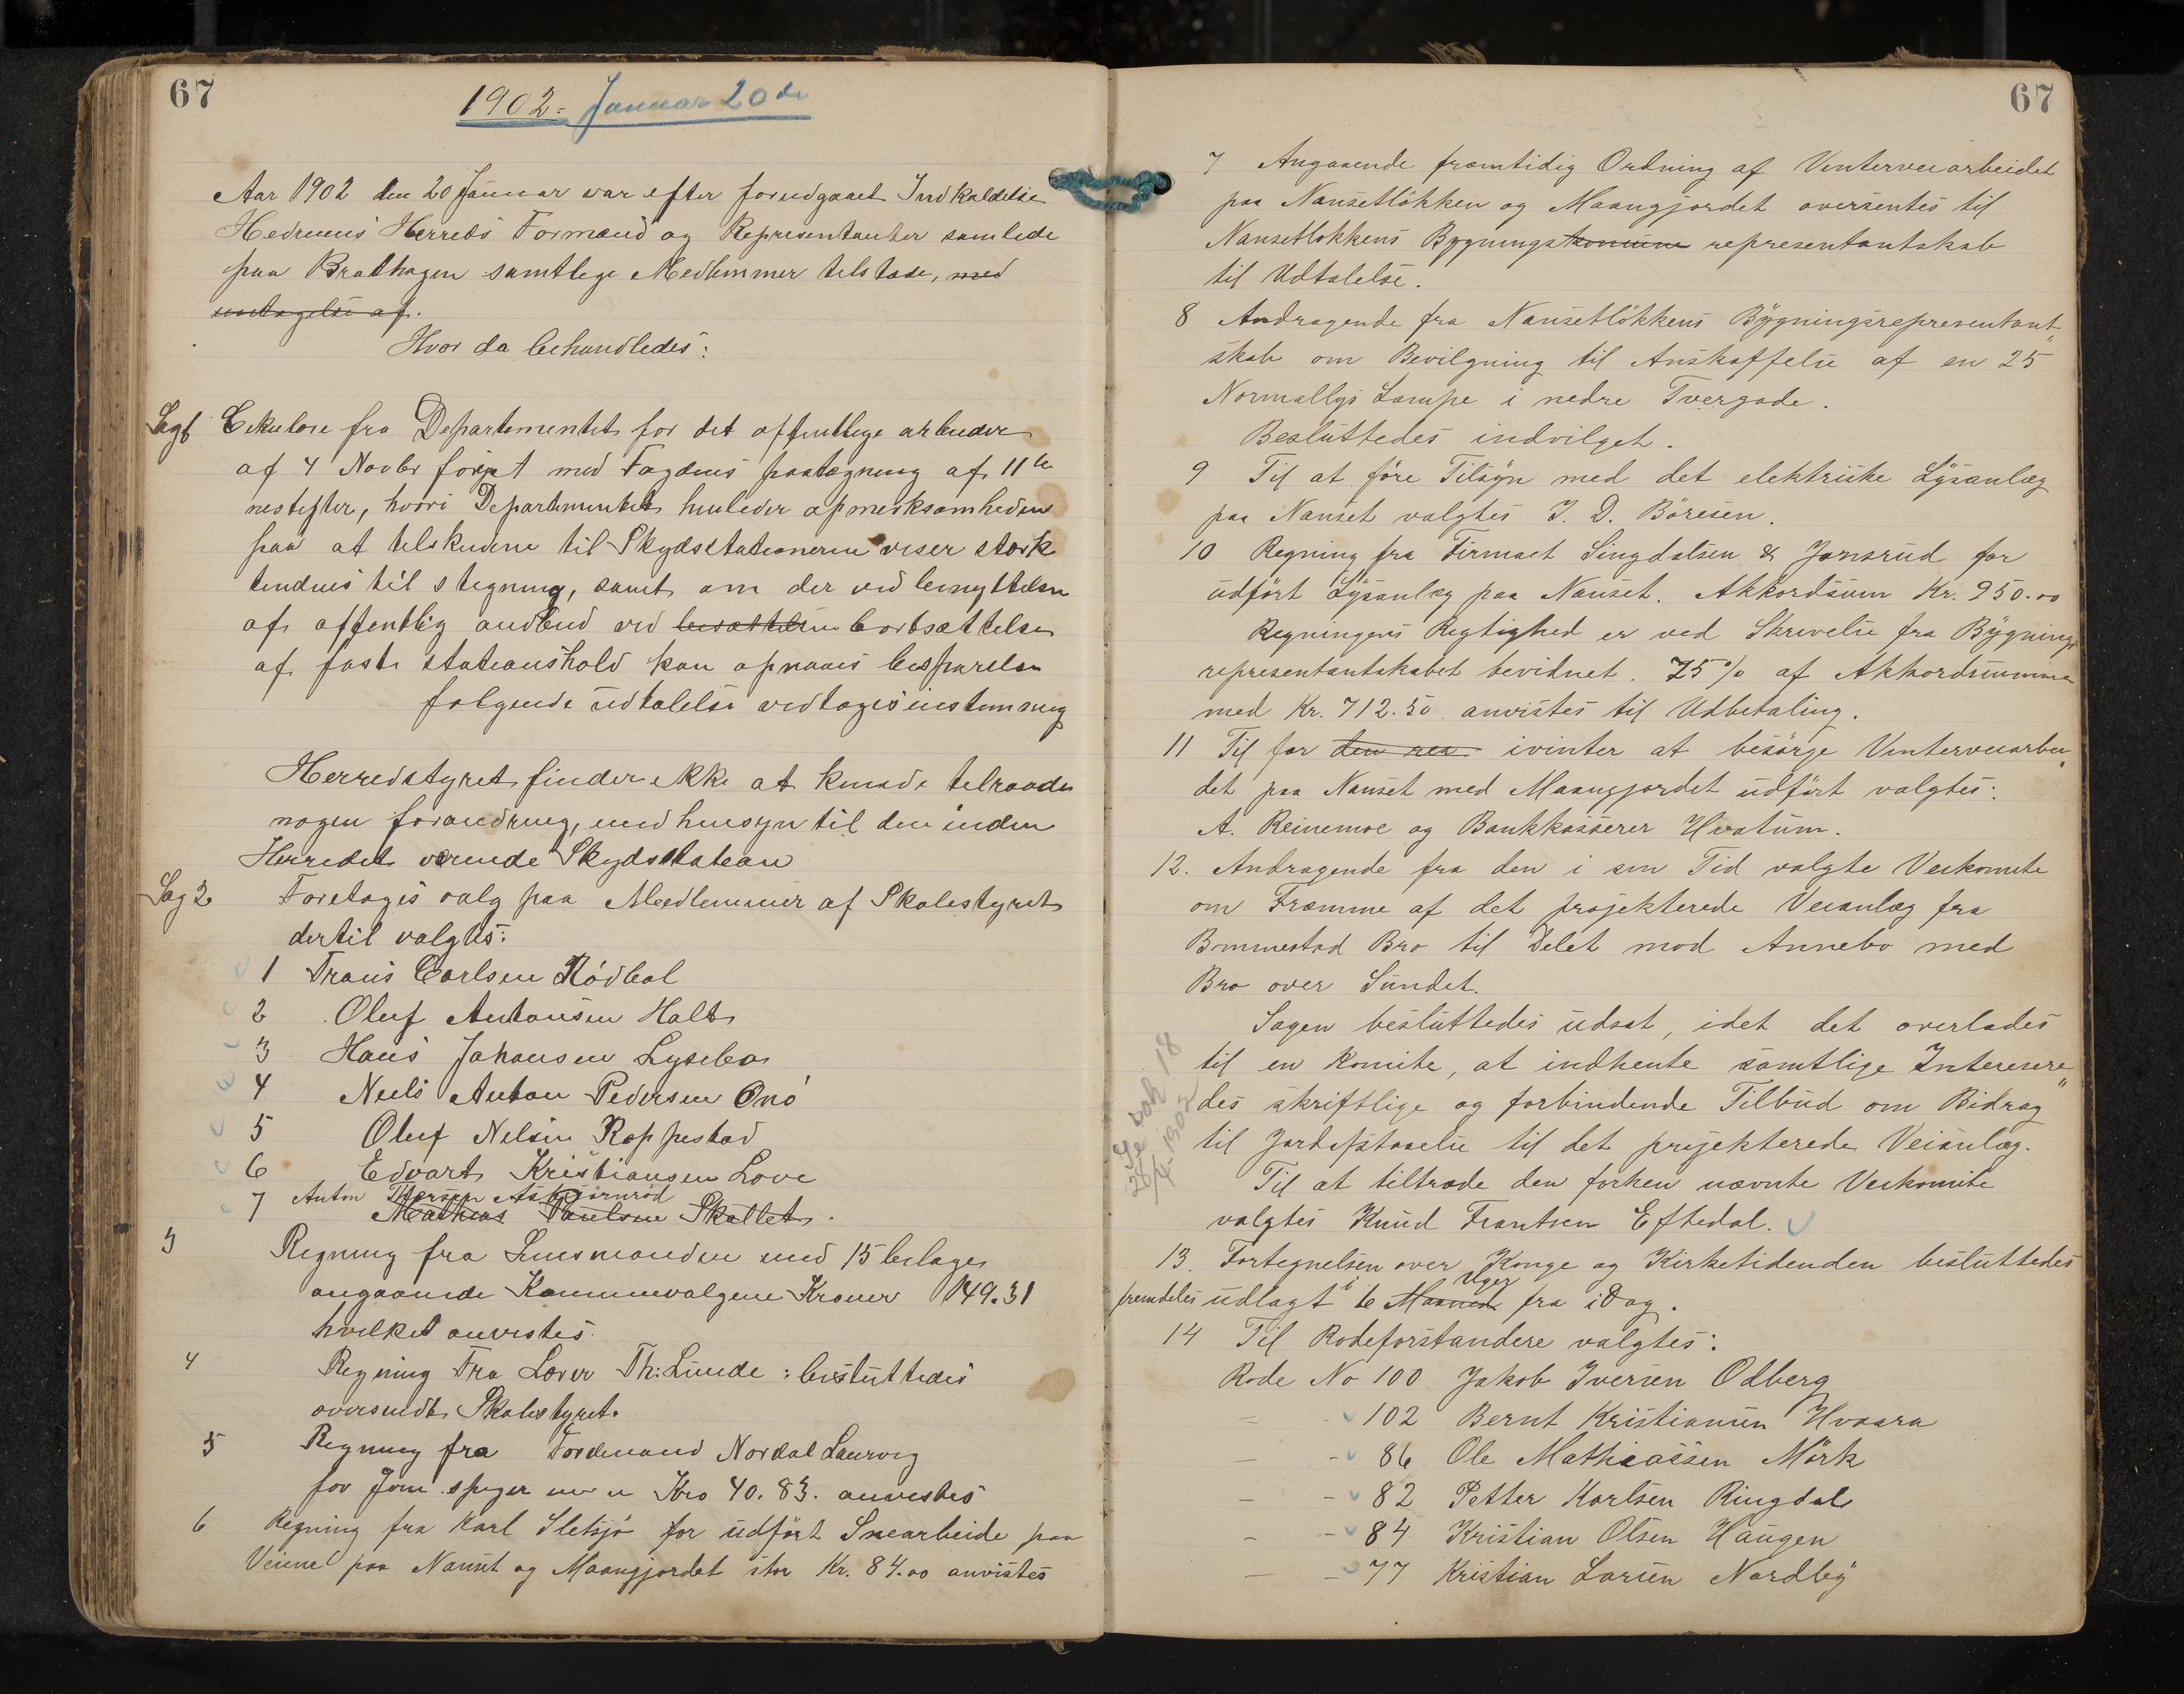 67
1902. Januar 20de
Aar 1902 den 20 Januar var efter forudgaaet Indkaldelse
Hedrums Herreds Formænd og Representanter samlede
paa Brathagen samtlige Medlemmer tilstæde, med
untagelse af.
Hvor da behandledes:
Sag 1 Cirkulære fra Departementet for det offentlige arbeider
af 4 Novbr forigt med Fogdens paategning af 11te
nestefter, hvori Departementet henleder opmerksomheden
paa at tilskudene til Skydsstationerne viser stærk
tendens til stigning, samt om der ved benyttelse
af offentlig anbud ved bortsættelse
af faste stationshold kan opnaaes besparelse
følgende udtalelse vedtoges
Herredstyret finder ikke at kunde tilraade
nogen forandring, med hensyn til den inden
Herredet værende Skydsstation
Sag 2 Foretoges valg paa Medlemmer af Skolestyret
dertil valgtes:
1 Frans Carlsen Rödbøl
2 Oluf Antonsen Holt
3 Hans Johansen Lysebo
4 Neels Anton Pedersen Onö
5 Oluf Nelsen Roppestad
6 Edvart Kristiansen Love
Anton Thorsen Asbjörnröd
7 Mathias Paulsen Skallet.
3 Regning fra Lensmanden med 15 bilage
angaaende Kommunevalgene Kroner 149.31
hvilket anvistes.
4 Regning Fra Lærer Th: Lunde : besluttedes
oversendt Skolestyret.
5 Regning fra Nordal Laurvig
for Kro 40.83. anvistes
6 Regning fra Karl Sletsjö for udfört Snearbeide paa
Veiene paa Nanset og Maangjordet stor Kr. 84.00 anvistes
67
7 Angaaende framtidig Ordning af Vinterveiarbeidet
paa Nansetlökken og Maangjordet oversentes til
Nansetlokkens Bygningskomune representantskab
til Udtalelse.
8 Andragende fra Nansetlökkens Bygningsrepresentant„
skab om Bevilgning til Anskaffelse af en 25
Normallys Lampe i nedre Tvergade.
Besluttedes indvilget.
9 Til at före Tilsyn med det elektriske Lysanlæg
paa Nanset valgtes J. D. Böresen.
10 Regning fra Firmaet Singdalsen & Jonsrud for
udfört Lysanlæg paa Nanset. Akkordsum Kr. 950.00
Regningens Rigtighed er ved Skrivelse fra Bygnings
representantskabet bevidnet. 75% af Akkordsumme
med Kr. 712.50 anvistes til Udbetaling.
11 Til for den ivinter at besörge Vinterveiarbei„
det paa Nanset med Maangjordet udfört valgtes:
A. Reinemoe og Bankkasserer Hvatum.
12. Andragende fra den i sin Tid valgte Veikomite
om Fræmme af det projekterede Veianlæg fra
Bommestad Bro til Delet mod Annebo med
Bro over Sundet.
Sagen besluttedes udsat, idet det overlades
til en Komite, at indhente samtlige Interesere„
des skriftlige og forbindende Tilbud om Bidrag
til Jordafstaaelse til det projekterede Veianlæg.
Til at tiltræde den forhen nævnte Veikomite
valgtes Knud Frantsen Eftedal.
Se sak 18
26/4. 1902
13. Fortegnelsen over Konge og Kirketidenden besluttedes
Uger
fremdeles udlagt i 6 Maaned fra iDag.
14 Til Rodeforstandere valgtes:
Rode No 100 Jakob Iversen Odberg
– – 102 Bernt Kristiansen Hvaara
– – 86 Ole Mathiassen Mörk
– – 82 Petter Karlsen Ringdal
– – 84 Kristian Olsen Haugen
– – 77 Kristian Larsen Nordby